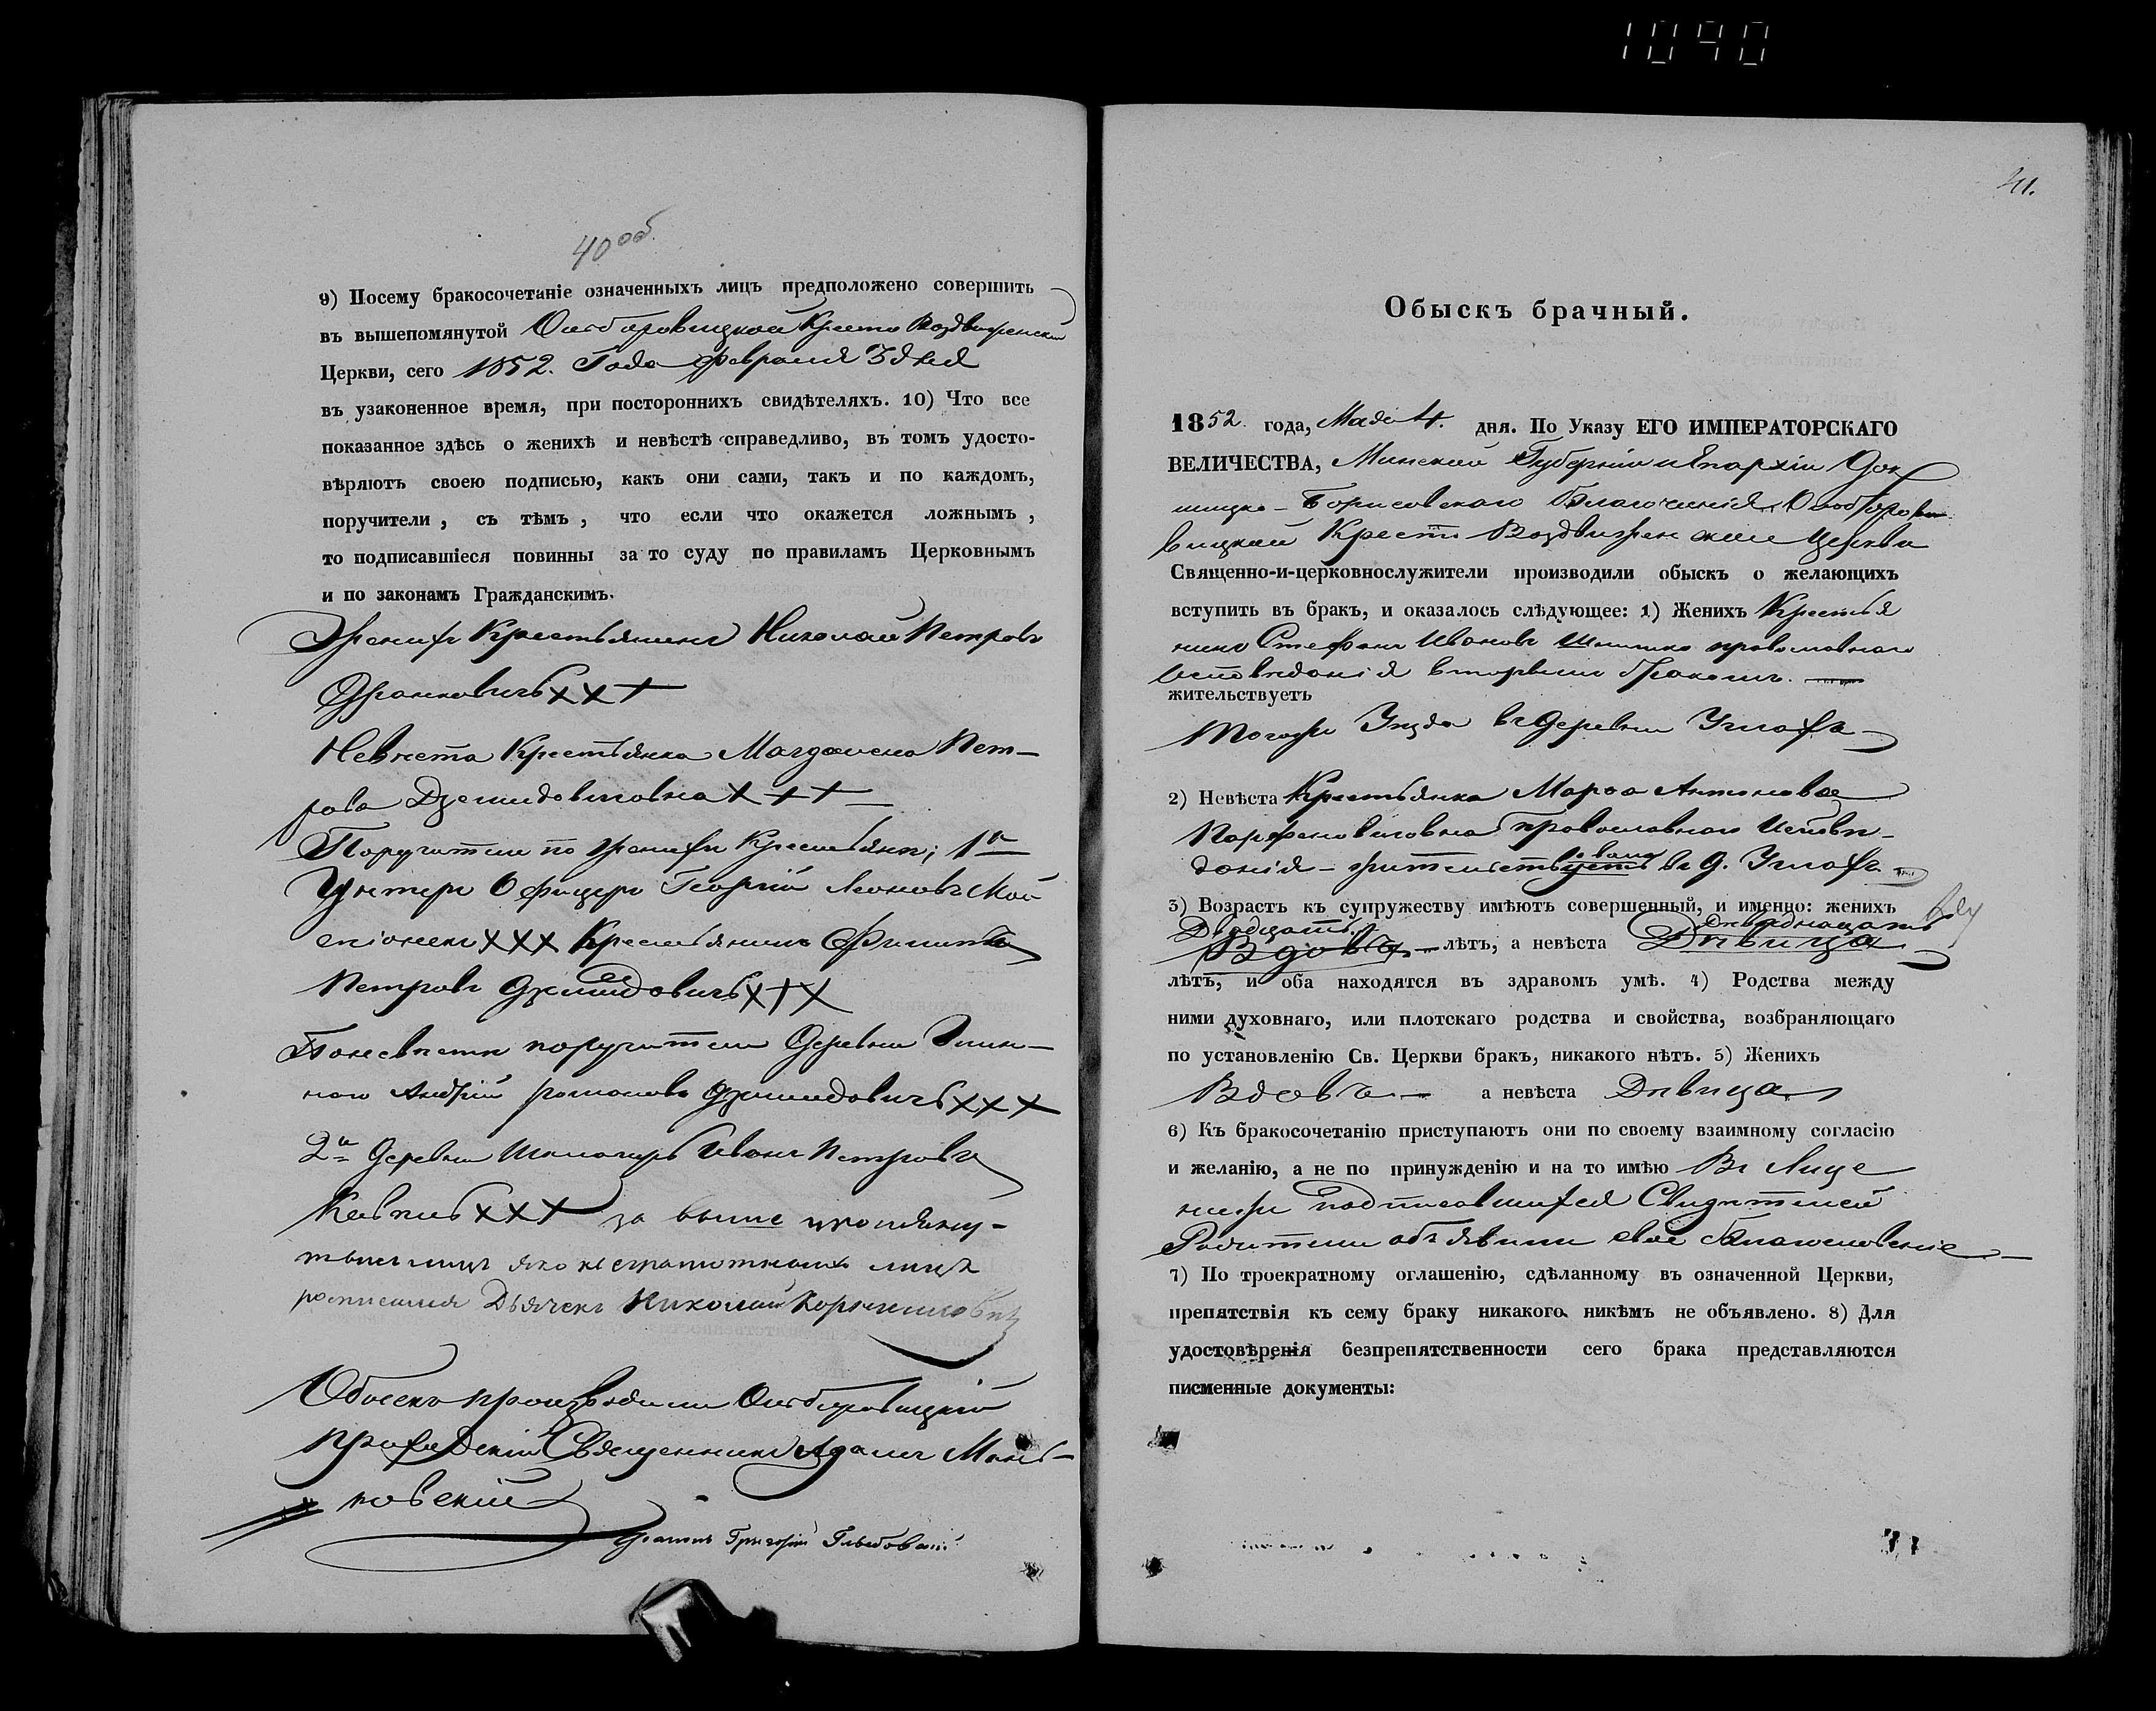 1040
40 об.
9) Посему бракосочетаніе означенныхъ лицъ предположено совершить
въ вышепомянутой Кресто Воздвиженской
Церкви, сего 1852. Года Февраля 3 дня
въ узаконенное время, при постороннихъ свидѣтеляхъ. 10) Что все
показанное здѣсь о женихѣ и невѣстѣ справедливо, въ томъ удосто-
вѣряютъ своею подписью, какъ они сами, такъ и по каждомъ,
поручители, съ тѣмъ, что если что окажется ложнымъ,
то подписавшіеся повинны за то суду по правиламъ Церковнымъ
и по законамъ Гражданскимъ.
Женихъ Крестьянинъ Николай Петровъ
ххх
Невѣста Крестьянка Магдалена Пет-
рова Дземидовичовна ххх
Поручители по женихѣ Крестьяне; 1й
Унтеръ Офицеръ Георгій Леоновъ
ххх Крестьянинъ Филиппъ
Петровъ Дземидовичь ххх
По невѣстѣ поручители Деревни
Андрей Романовъ Дземидовичь ххх
2й Деревни Иванъ Петровъ
ххх за выше
лицъ яко неграмотныхъ
росписался Дьячекъ Николай
Обыскъ производили
Приходскій Священникъ Адамъ Мань-
ковскій
Григорій
41.
Обыскъ брачный.
1852 года, Мая 4. дня. По Указу ЕГО ИМПЕРАТОРСКАГО
ВЕЛИЧЕСТВА, Минской Губерніи и Епархіи Док-
шицко-Борисовскаго Благочинія
вицкой Кресто Воздвиженской Церкви
Священно-и-церковнослужители производили обыскъ о желающихъ
вступить въ бракъ, и оказалось слѣдующее: 1) Женихъ Крестья
нинъ Стефанъ Ивановъ православнаго
Исповѣданія вторымъ бракомъ.
жительствуетъ
тогоже Уѣзда въ Деревни
2) Невѣста Крестьянка Марѳа Антонова
Парфеновичовна православнаго Исповѣ-
данія – жительствуетъ въ д.
3) Возрастъ къ супружеству имѣютъ совершенный, и именно: женихъ
Двадцать
Вдовъ лѣтъ, а невѣста Дѣвица
лѣтъ, и оба находятся въ здравомъ умѣ. 4) Родства между
ними духовнаго, или плотскаго родства и свойства, возбраняющаго
по установленію Св. Церкви бракъ, никакого нѣтъ. 5) Женихъ
Вдовъ – а невѣста Дѣвица
6) Къ бракосочетанію приступаютъ они по своему взаимному согласію
и желанію, а не по принужденію и на то имѣю Въ Лице
ниже подписавшихся Свидѣтелей
Родители объявили свое Благословеніе
7) По троекратному оглашенію, сдѣланному въ означенной Церкви,
препятствія къ сему браку никакого никѣмъ не объявлено. 8) Для
удостовѣренія безпрепятственности сего брака представляются
писменные документы: